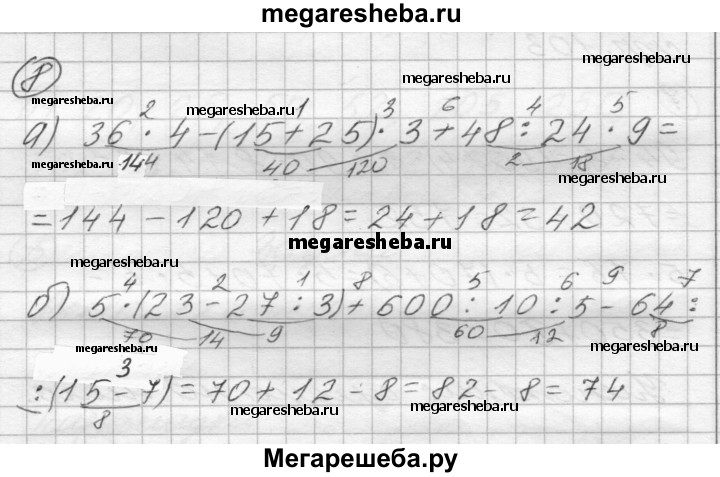 megaresheba.ru
8
megaresheba.ru megaresheba.ru megaresheba.ru
2 1 3 6 4 5
а) 36 · 4 - (15 + 25) · 3 + 48 : 24 · 9 =
megaresheba.ru ·144 40 120 megaresheba.ru 2 18
megaresheba.ru
= 144 - 120 + 18 = 24 + 18 = 42
megaresheba.ru
megaresheba.ru megaresheba.ru
4 2 1 8 5 6 9 7
б) 5 · (23 - 27 : 3) + 600 : 10 : 5 - 64 :
70 14 9 60 12 8
megaresheba.ru megaresheba.ru megaresheba.ru
3
: (15 - 7) = 70 + 12 - 8 = 82 - 8 = 74
8 megaresheba.ru megaresheba.ru
Мегарешеба.ру